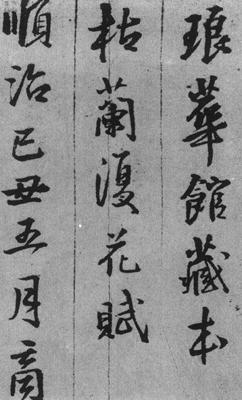 琅華館藏本
枯蘭復花賦
順治己丑五月商